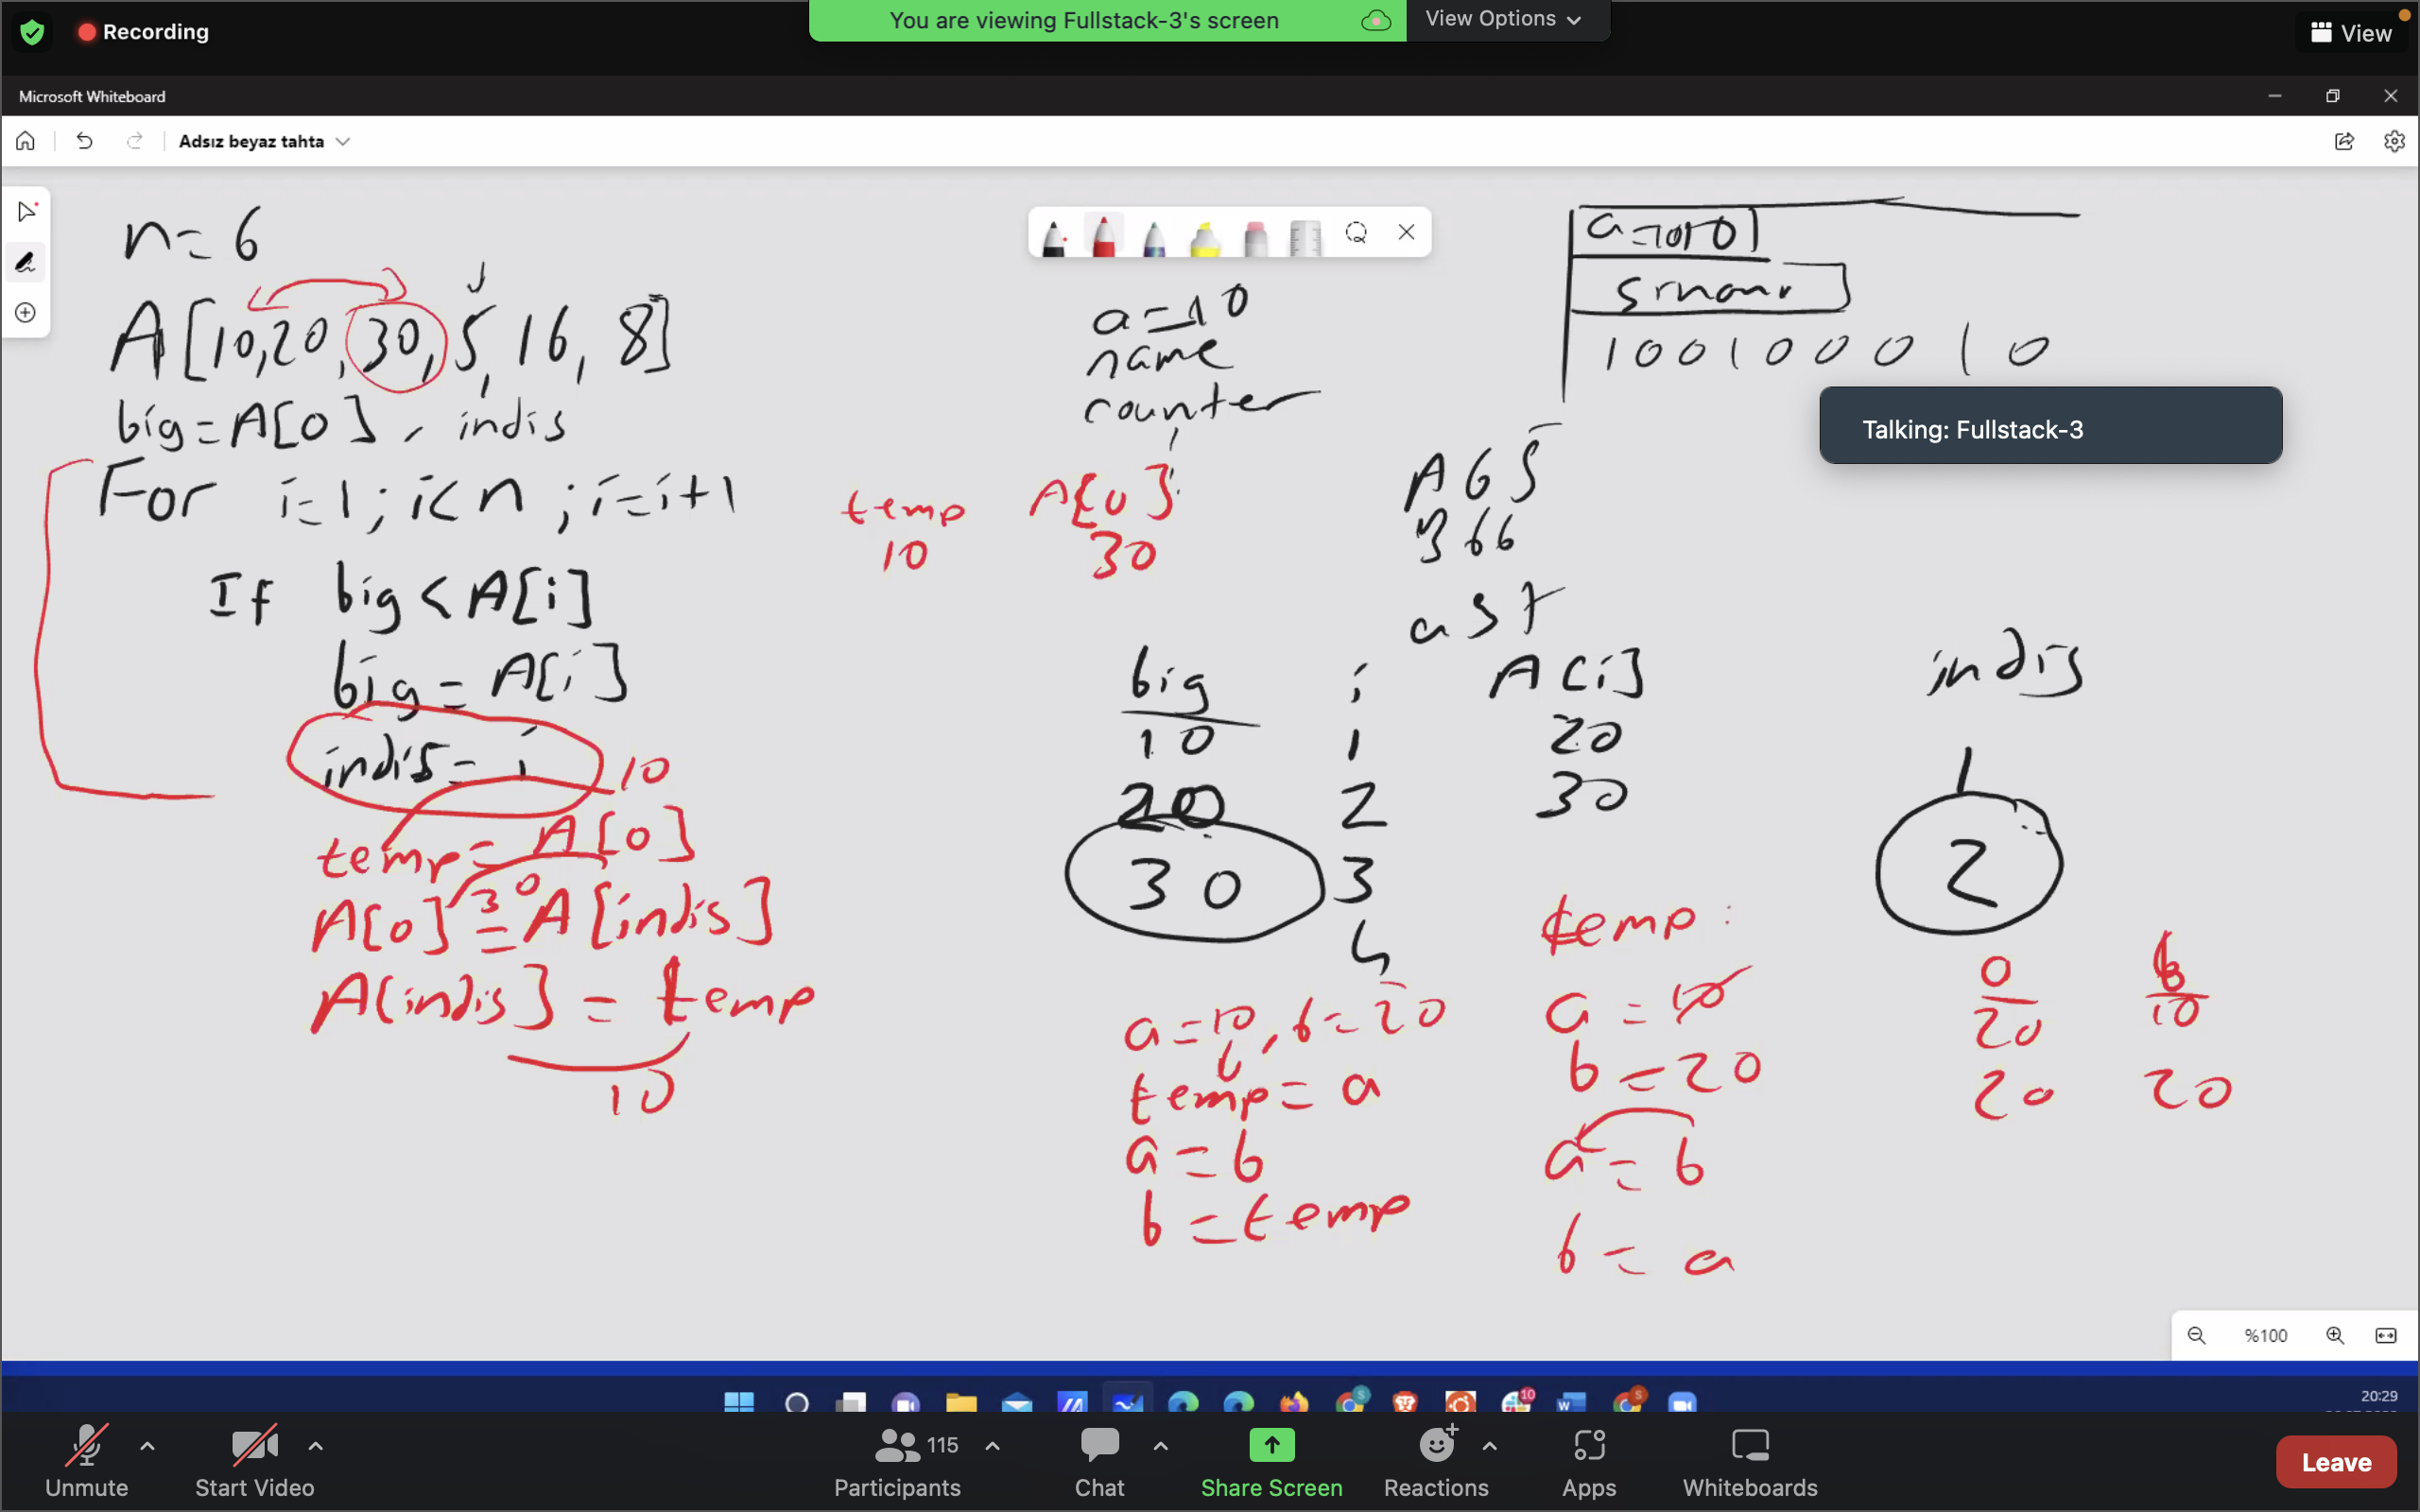 Recording
You are viewing Fullstack-3's screen
View Options
View
Microsoft Whiteboard
Adsız beyaz tahta
n=6
A[10,20,30,5,16,8]
big=A[0], indis
For i=1; i<n; i=i+1
If big<A[i]
big=A[i]
indis=i
10
temp=A[0]
30
A[0]=A[indis]
A[indis]=temp
10
a=10
name
counter
temp A[0]
10 30
a=1010
1001000010
Talking: Fullstack-3
A65
366
big i A[i] indis
10 1 20 1
20 2 30 2
30 3
4
a=10, b=20
temp=a
a=b
b=temp
temp:
a=10
b=20
a=b
b=a
20 10
20 20
%100
10
20:29
Unmute
Start Video
115
Participants
Chat
Share Screen
Reactions
Apps
Whiteboards
Leave